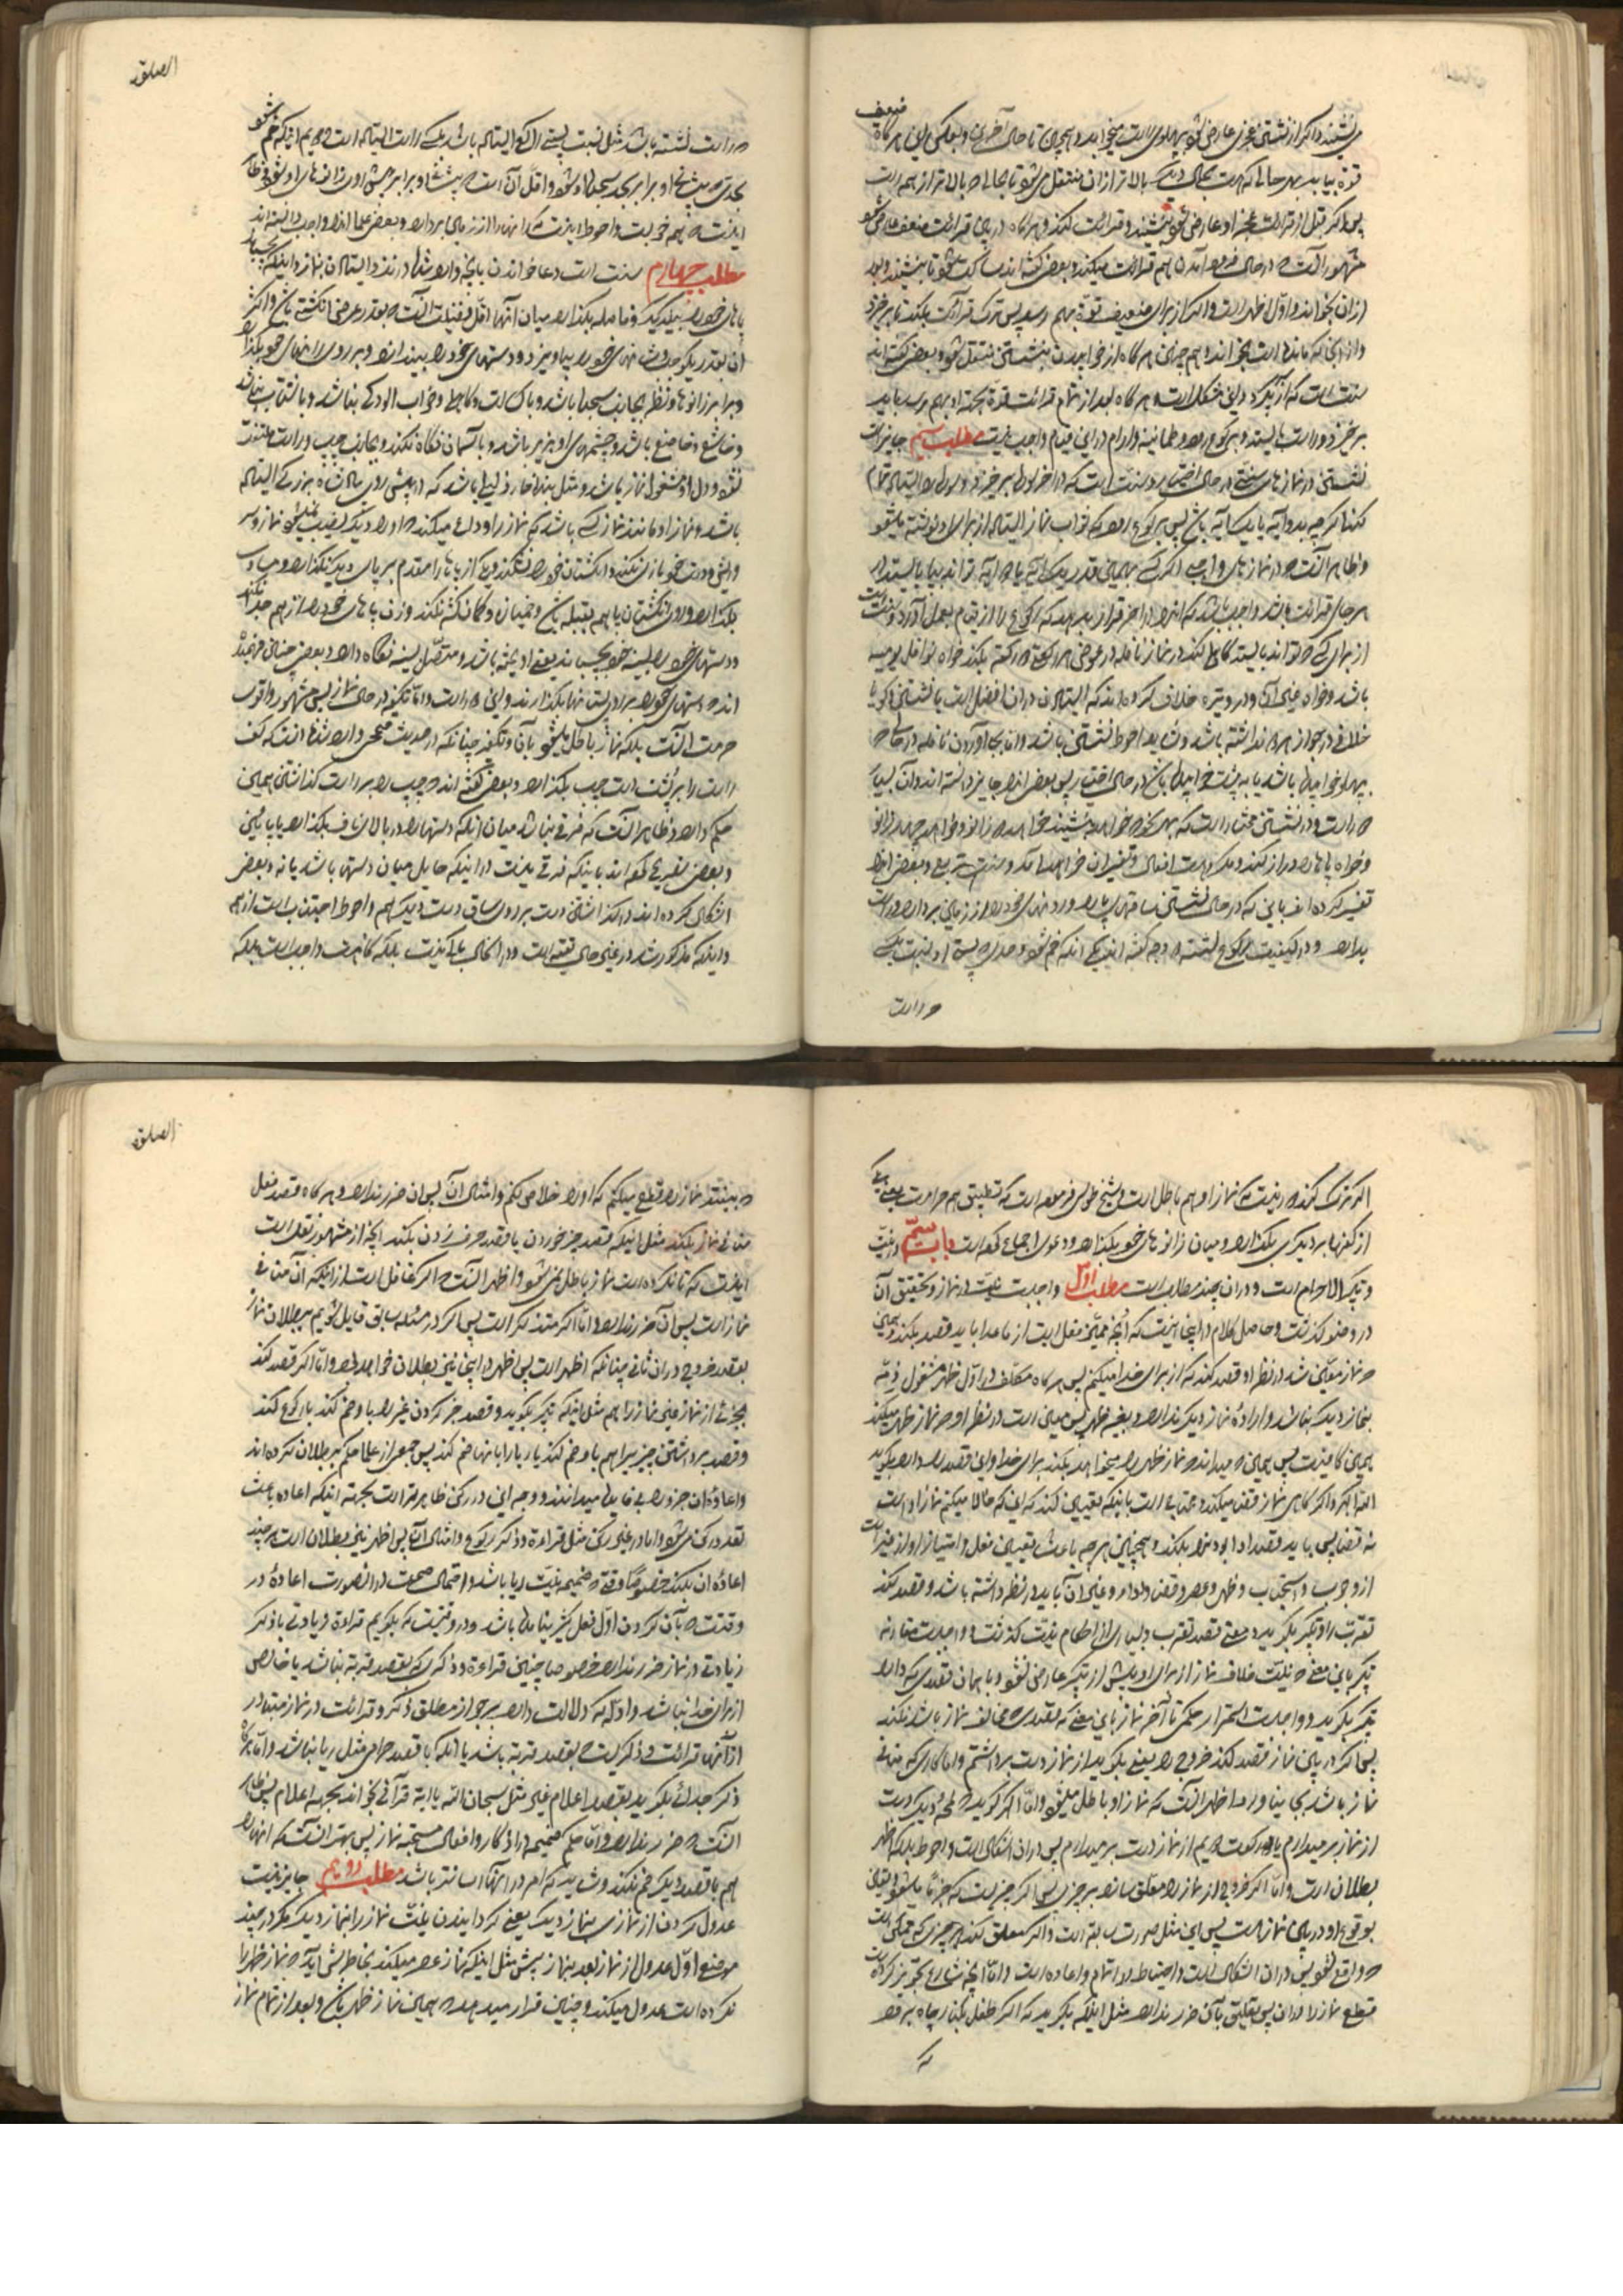 می‌نشیند و اگر از نشستن عجزی عارض شود بپهلوی راست میخوابد و همچنین تا حال آخرین و بعکس این هر گاه ضعیف
قوّه بیابد بهر حالی که هست بحالی دیگر بالاتر از آن منتقل میشود تا بحالی که بالاتر از همه است
پس اگر قبل از قرائت عجز او عارض شود بنشیند و قرائت کند و هر گاه در بین قرائت ضعف عارض شود
مشهور آنست که در حال فرود آمدن هم قرائت میکند و بعضی گفته‌اند ساکت میشود تا بنشیند و بعد
از آن بخواند و اوّل اظهر است و اگر از برای ضعیف قوّة بهم رسد پس ترک قرائت بکند تا برخیزد
و از آنجا که مانده است بخواند و هم چنین هر گاه از خوابیدن بنشستن منتقل شود و بعضی گفته‌اند
سنت است که از سر گیرد و این مشکل است و هر گاه بعد از تمام قرائت قوّة بجهة او بهم رسد باید
برخیزد و راست بایستد و برکوع رود و طمانینه و آرام در این قیام واجب نیست مطلب سیم جایز است
نشستن در نمازهای سنتی در حال اختیار و سنت است که در آخر سوره برخیزد و سوره را ایستاده تمام
کند اگر چه بدو آیه یا یک آیه باشد پس برکوع رود که ثواب نماز ایستاده از برای او نوشته میشود
و ظاهر آنست که در نمازهای واجبی اگر کسی بهمین قدر یک آیه یا دو آیه تواند بپا بایستد در
هر جای قرائت باشد واجب باشد که آنرا در آخر قرار بدهد که رکوع را از قیام بعمل آورد و سنت است
از برای کسی که تواند بایستد که در نماز نافله در عوض هر رکعتی دو رکعت بکند خواه نوافل یومیه
باشد و خواه غیر آن و در وتیره خلاف کرده‌اند که ایستادن در آن افضل است یا نشستن و گویا
خلافی در جواز هر دو نداشته باشد و شاید احوط نشستن باشد و اما بجا آوردن نافله در حالی که
بپهلو خوابیده باشد یا به پشت خوابیده باشد در حال اختیار پس بعضی آنرا جایز دانسته‌اند و آن بسیار
دور است و در نشستن مختار است که بهر نحو که خواهد بنشیند خواه دو زانو و خواه چهار زانو
و خواه پاها را دراز کند و مکروهست اقعاء و تفسیر آن خواهد آمد و سنت است تربیع و بعضی آنرا
تفسیر کرده‌اند باین که در حال نشستن ساقهای پا را و رانهای خود را از زمین بردارد و راست
بدارد و در کیفیت رکوع نشسته دو وجه گفته‌اند یکی آنکه خم شود بحدی که پشت او نسبت بکسی
که راست
الصلوة
که راست نشسته باشد مثل نسبت پشت راکع ایستاده باشد بکسی که راست ایستاده است دویم اینکه خم شود
بحدی که پیشانی او برابر بجای سجده او شود و اقل آن است که پیشانی او برابر پیش او در زانوهای او شود و ظاهر
اینست که هر دو خوبست و احوط اینست که رانها را از زمین بردارد و بعضی علما آنرا واجب دانسته‌اند
مطلب چهارم سنت است دعا خواندن بآنچه وارد شده در نزد ایستادن بنماز و اینکه بچسباند
پاهای خود را بیکدیگر و فاصله بگذارد میان آنها اقل فضیلت آنست که بقدر عرض انگشتی باشد و اکثر
آن بقدر یک وجب و شانهای خود را بیاویزد و دستهای خود را بیندازد و بر روی رانهای خود بگذارد
و برابر زانوها و نظر بجانب سجده‌گاه باشد و با کسالت و کاهلی و خواب آلودگی نباشد و با شتاب نباشد
و خاشع و خاضع باشد و چشمهای او بزیر باشد و بآسمان نگاه نکند و بجانب چپ و راست ملتفت
نشود و دل او مشغول نماز باشد و مثل بنده خوار ذلیلی باشد که در پیش روی پادشاه بزرگی ایستاده
باشد و نماز او مانند نماز کسی باشد که نماز را وداع میکند که او را دیگر نصیب نمیشود نماز و سر
و ریش و دست خود بازی نکند و انگشتان خود را نشکند و یکی از پاها را مقدم بر پای دیگر نگذارد و مساوی
بگذارد و روی انگشتان پا هم بقبله باشد و خمیازه و کمان‌کشه نکند و زن پاهای خود را از هم جدا نکند
و دستهای خود را بسینه خود بچسباند یعنی آویخته باشد و متصل بسینه نگاه دارد و بعضی چنان فهمیده
اند که دستهای خود را بر روی پستانها بگذارند و این دور است و اما تکتف در حال نماز پس مشهور و اقوی
حرمت آنست بلکه نماز باطل میشود بآن و تکتف چنانکه در حدیث صحیح وارد شده آنست که کف
راست را بر پشت دست چپ بگذارد و بعضی گفته‌اند که چپ را بر راست گذاشتن همین
حکم دارد و ظاهر آنست که فرقی نباشد میان آنکه دستها را در بالای ناف بگذارد یا پائین
و بعضی تصریح کرده‌اند باینکه فرقی نیست در اینکه حایل میان دستها باشد یا نه و بعضی
اشکال کرده‌اند در گذاشتن دست بر روی ساق دست دیگر هم و احوط اجتناب است از همه
و اینکه مذکور شد در غیر حال تقیه است و در آن حال باکی نیست بلکه گاه هست واجب است بلکه
اگر ترک کند دور نیست که نماز او هم باطل است و شیخ طوسی فرموده است که تطبیق هم حرامست یعنی یکی
از کفها بر دیگری بگذارد و میان زانوهای خود بگذارد و دعوی اجماع کرده است باب سیّم در نیّت
و تکبیرة الاحرام است و در آن چند مطلب است مطلب اوّل واجبست نیّت در نماز و تحقیق آن
در وضو گذشت و حاصل کلام در اینجا اینست که آنچه ممیّز فعل است از ماعدا باید قصد بکند و همین
که نماز معیّن شد در نظر او قصد کند که از برای خدا میکنم پس هر گاه مکلّف در اوّل ظهر مشغول ذمّه
بنماز دیگر نباشد و اراده نماز دیگر ندارد و بغیر ظهر پس معین است در نظر او که نماز ظهر میکند
همین کافیست پس همین که میداند که نماز ظهر را میخواهد بکند برای خدا و این قصد را دارد بگوید
الله اکبر و اگر گاهی نماز قضا میکند محتاج است باینکه تعیین کند که این که حالا میکنم نماز ادا است
نه قضا پس باید قصد ادا بودن را بکند و همچنین هر چه باعث تعیین فعل و امتیاز او از غیر است
از وجوب و استحباب و ظهر و عصر و قضا و ادا و غیر آن باید در نظر داشته باشد و قصد کند
تقرب را و تکبیر بگوید و معنی قصد تقرب و بسیاری از احکام نیّت گذشت و واجبست مقارنه
تکبیر باین معنی که نیّت خلاف نماز از برای او پیش از تکبیر عارض نشود و با همان قصدی که دارد
تکبیر بگوید و واجبست استمرار حکمی تا آخر نماز باین معنی که قصدی که مخالف نماز باشد نکند
پس اگر در بین نماز قصد کند خروج را یعنی بگوید از نماز دست برداشتم و اما کاری که منافی
نماز باشد بجا نیاورد اظهر آنست که نماز او باطل میشود و اما اگر گوید که لمحه دیگر دست
از نماز بر میدارم یا در رکعت دویم از نماز دست بر میدارم پس در آن اشکال است و احوط بلکه اظهر
بطلان است و اما اگر خروج از نماز را معلق سازد بر چیزی پس اگر چیزیست که جزما میشود یعنی
بوقوع او در بین نماز است پس این مثل صورت سابقه است و اگر معلق کند بر چیزی که ممکن است
که واقع نشود پس در آن اشکال است و احتیاط در اتمام و اعاده است و اما آنچه شارع تجویز کرده است
قطع نماز را در آن پس تعلیق بآن ضرر ندارد مثل اینکه بگوید که اگر طفل بکنار چاه برود
که
الصلوة
که بیفتد نماز را قطع میکنم که او را خلاص کنم و امثال آن پس آن ضرر ندارد و هر گاه قصد فعل
منافی نماز بکند مثل اینکه قصد چیز خوردن یا قصد حرف زدن بکند آنچه از مشهور نقل است
اینست که تا نکرده است نماز باطل نمیشود و اظهر آنست که اگر غافل است از اینکه آن منافی
نماز است پس آن ضرر ندارد و اما اگر متذکر است پس اگر در مسئله سابق قایل شویم ببطلان نماز
بقصد خروج در آن ثانی چنانکه اظهر است پس اظهر در این نیز بطلان خواهد بود و اما اگر قصد کند
بجزئی از نماز غیر نماز را هم مثل اینکه تکبیر بگوید و قصد خبر کردن غیر را باو ضم کند یا رکوع کند
و قصد برداشتن چیزی را هم باو ضم کند یا ریا را بآنها ضم کند پس جمعی از علما حکم ببطلان کرده‌اند
و اعاده آن جزو را بی‌فایده میدانند و وجه این در رکن ظاهرتر است بجهة اینکه اعاده باعث
تعدد رکن میشود و اما در غیر رکن مثل قراءة و ذکر رکوع و امثال آن پس اظهر نیز بطلان است هر چند
اعاده آن بکند خصوصا وقتی که ضمیمه نیّت ریا باشد و احتمال صحت در آن صورت اعاده در
وقتیست که بآن کردن اوّل فعل کثیر بنا نهاده باشد و دور نیست که بگویم قراءة زیادتی یا ذکر
زیادتی در نماز ضرر ندارد خصوصا چنین قراءة و ذکری که بقصد قربة نباشد یا خالص
از برای خدا نباشد و ادلّه که دلالت دارد بر جواز مطلق ذکر و قرائت در نماز متبادر
از آنها قرائت و ذکریست که بقصد قربة باشد یا آنکه با قصد حرامی مثل ریا نباشد و اما هر گاه
ذکر جدائی بگوید بقصد اعلام غیر مثل سبحان الله یا آیه قرآنی بخواند بجهة اعلام پس ظاهر
آنست که ضرر ندارد و اما حکم ضمیمه در اذکار و افعال مستحبه نماز پس بهتر آنست که آنها را
هم با قصد دیگر ضم نکند و شاید که امر در آنها آسان‌تر باشد مطلب دویم جایز نیست
عدول کردن از نمازی بنماز دیگر یعنی گردانیدن نیّت نماز را بنماز دیگر مگر در چند
موضع اوّل عدول از نماز بعد بنماز پیش مثل اینکه نماز عصر میکند بخاطرش آید که نماز ظهر را
نکرده است عدول میکند و چنین قرار میدهد که همین نماز ظهر باشد و بعد از تمام نماز